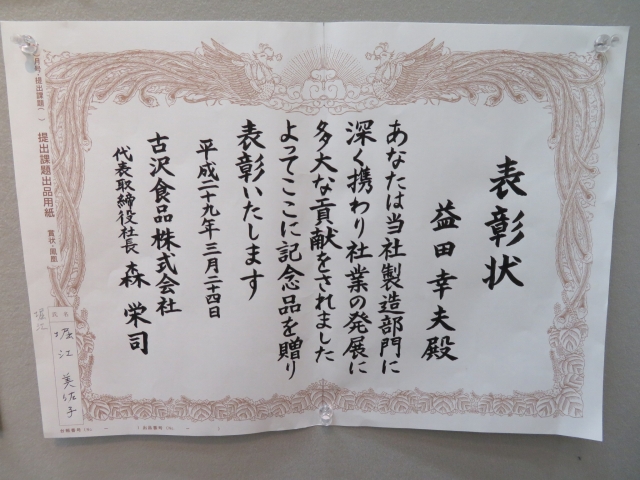 表彰状
益田幸夫殿
あなたは当社製造部門に
深く携わり社業の発展に
多大な貢献をされました
よってここに記念品を贈り
表彰いたします
平成二十九年三月二十四日
古沢食品株式会社
代表取締役社長 森栄司
提出課題出品用紙 賞状・鳳凰
氏名
堀江 美佐子
堀江